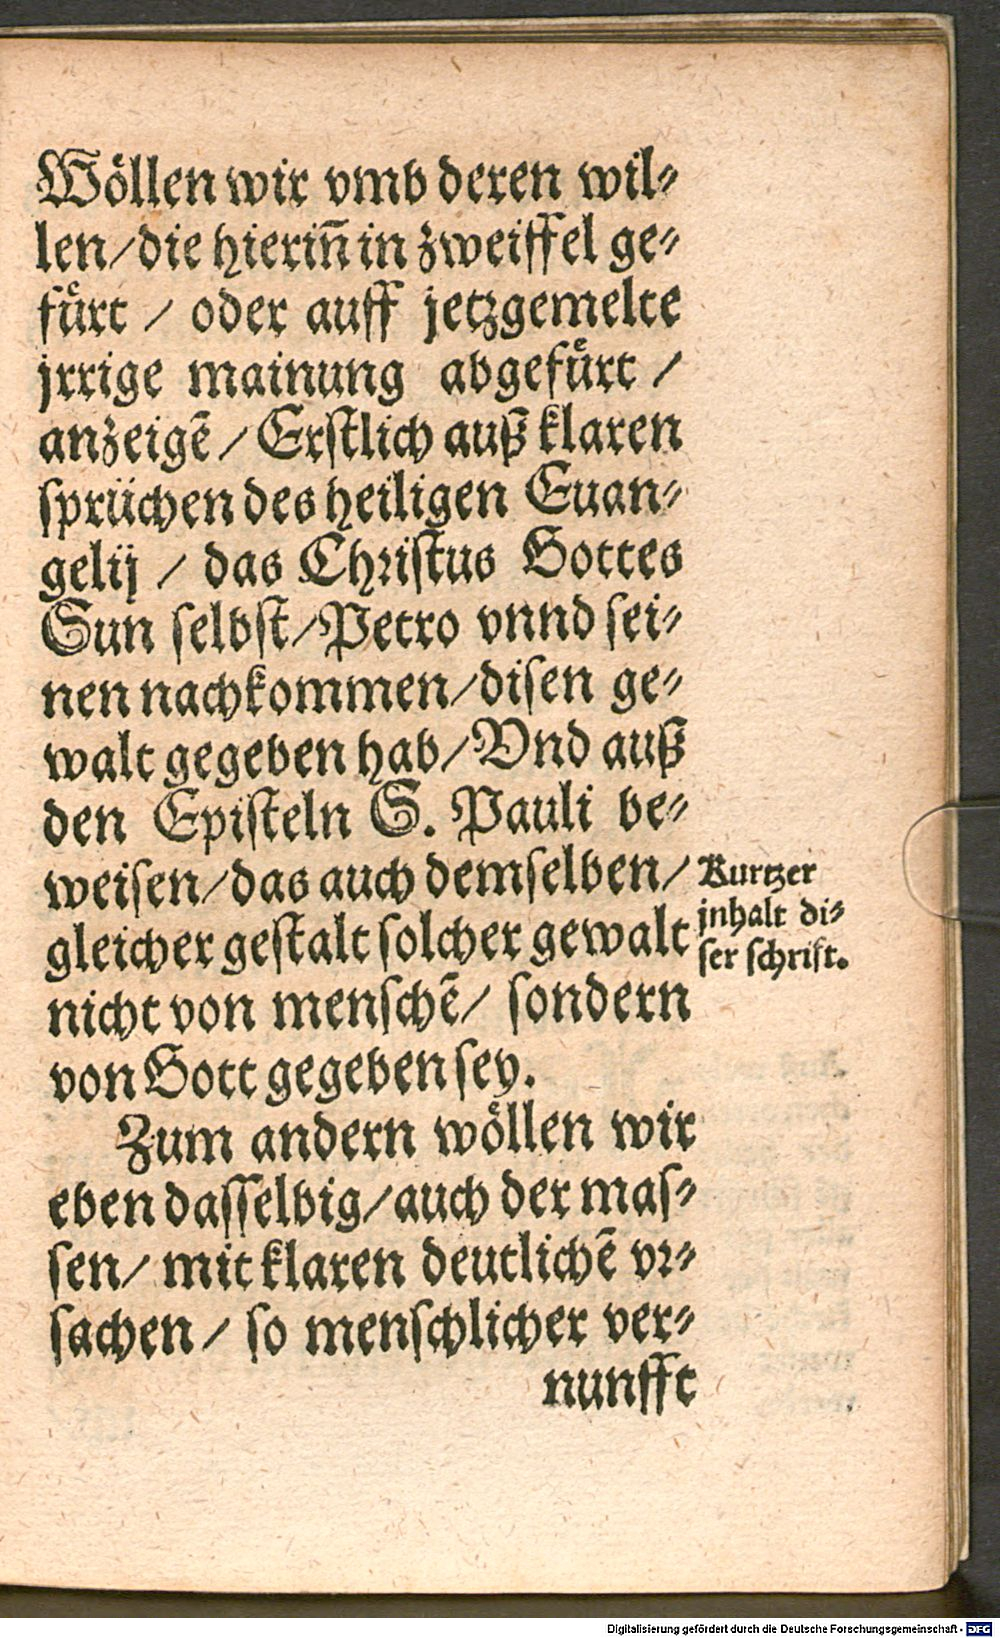 Wöllen wir vmb deren wil⸗
len/die hierin̄ in zweiffel ge⸗
fuͤrt / oder auff jetzgemelte
jrrige mainung abgefuͤrt /
anzeigē/Erstlich auß klaren
sprüchen des heiligen Euan⸗
gelij / das Christus Gottes
Sun selbst/Petro vnnd sei⸗
nen nachkommen/disen ge⸗
walt gegeben hab/Vnd auß
den Episteln S. Pauli be⸗
weisen/das auch demselben/
gleicher gestalt solcher gewalt
nicht von menschē/ sondern
von Gott gegeben sey.
Kurtzer
jnhalt di⸗
ser schrift.
Zum andern wöllen wir
eben dasselbig/auch der mas⸗
sen/ mit klaren deutlichē vr⸗
sachen/ so menschlicher ver⸗
nunfft
Digitalisierung gefördert durch die Deutsche Forschungsgemeinschaft - DFG